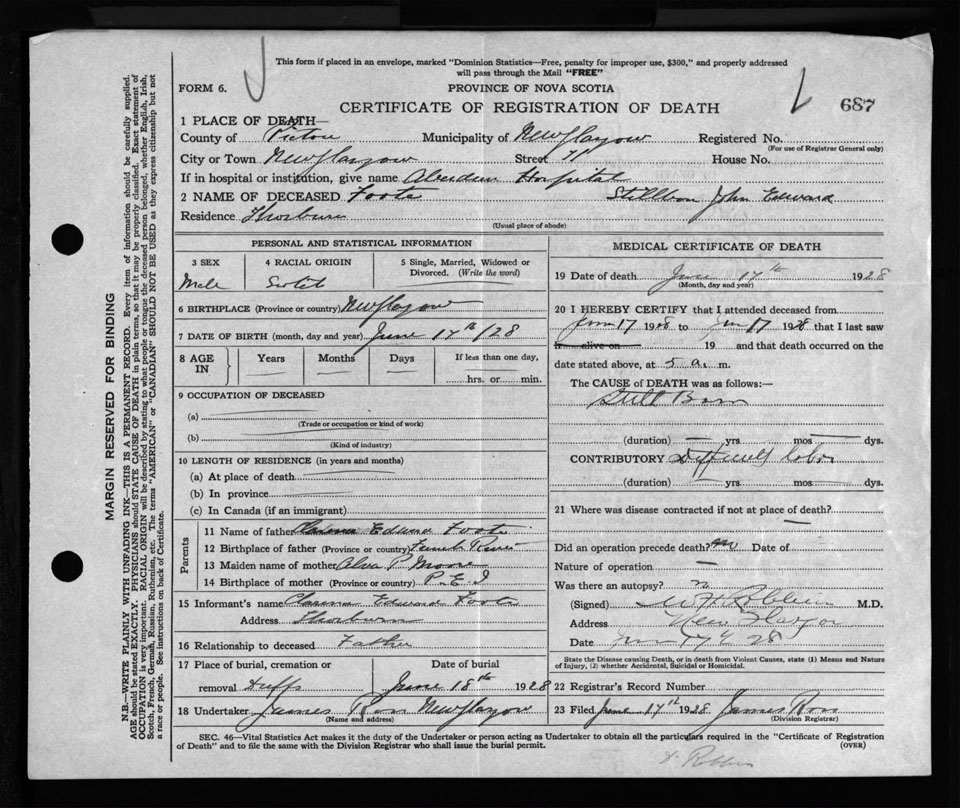 This form if placed in an envelope, marked "Dominion Statistics—Free, penalty for improper use, $300," and properly addressed
will pass through the Mail "FREE"
FORM 6.
PROVINCE OF NOVA SCOTIA
CERTIFICATE OF REGISTRATION OF DEATH
687
1 PLACE OF DEATH—
County of Pictou Municipality of New Glasgow Registered No.
(For use of Registrar General only)
City or Town New Glasgow Street House No.
If in hospital or institution, give name Aberdeen Hospital
2 NAME OF DECEASED Foote Stillborn John Edward
Residence Thorburn
(Usual place of abode)
PERSONAL AND STATISTICAL INFORMATION
3 SEX 4 RACIAL ORIGIN 5 Single, Married, Widowed or Divorced. (Write the word)
Male Scotch
6 BIRTHPLACE (Province or country) New Glasgow
7 DATE OF BIRTH (month, day and year) June 17th /28
8 AGE IN Years Months Days If less than one day,
— — — ......hrs. or ......min.
9 OCCUPATION OF DECEASED
(a)
(Trade or occupation or kind of work)
(b)
(Kind of industry)
10 LENGTH OF RESIDENCE (in years and months)
(a) At place of death
(b) In province
(c) In Canada (if an immigrant)
Parents
11 Name of father Clarence Edward Foote
12 Birthplace of father (Province or country) French River
13 Maiden name of mother Alva P Moore
14 Birthplace of mother (Province or country) P.E.I
15 Informant's name Clarence Edward Foote
Address Thorburn
16 Relationship to deceased Father
17 Place of burial, cremation or Date of burial
removal Duffs June 18th 1928
18 Undertaker James Ross New Glasgow
(Name and address)
MEDICAL CERTIFICATE OF DEATH
19 Date of death June 17th 1928
(Month, day and year)
20 I HEREBY CERTIFY that I attended deceased from
June 17 1928 to June 17 1928 that I last saw
h— alive on 19 and that death occurred on the
date stated above, at 5 a.m.
The CAUSE of DEATH was as follows:—
Still Born
(duration) — yrs mos — dys.
CONTRIBUTORY Difficult labor
(duration) — yrs mos dys.
21 Where was disease contracted if not at place of death?
—
Did an operation precede death? no Date of
Nature of operation —
Was there an autopsy? n
(Signed) W H Robbins M.D.
Address New Glasgow
Date June 17 28
State the Disease causing Death, or in death from Violent Causes, state (1) Means and Nature
of Injury, (2) whether Accidental, Suicidal or Homicidal.
22 Registrar's Record Number
23 Filed June 17th 1928 James Ross
(Division Registrar)
SEC. 46—Vital Statistics Act makes it the duty of the Undertaker or person acting as Undertaker to obtain all the particulars required in the "Certificate of Registration
of Death" and to file the same with the Division Registrar who shall issue the burial permit.
(OVER)
Robbins
MARGIN RESERVED FOR BINDING
N.B.—WRITE PLAINLY WITH UNFADING INK—THIS IS A PERMANENT RECORD. Every item of information should be carefully supplied.
AGE should be stated EXACTLY. PHYSICIANS should STATE CAUSE OF DEATH in plain terms, so that it may be properly classified. Exact statement of
OCCUPATION is very important. RACIAL ORIGIN will be described by stating to what people or tongue the deceased person belonged, whether English, Irish,
Scotch, French, German, Russian, Ruthenian, etc. The terms "AMERICAN" or "CANADIAN" SHOULD NOT BE USED as they express citizenship but not
a race or people. See instructions on back of Certificate.